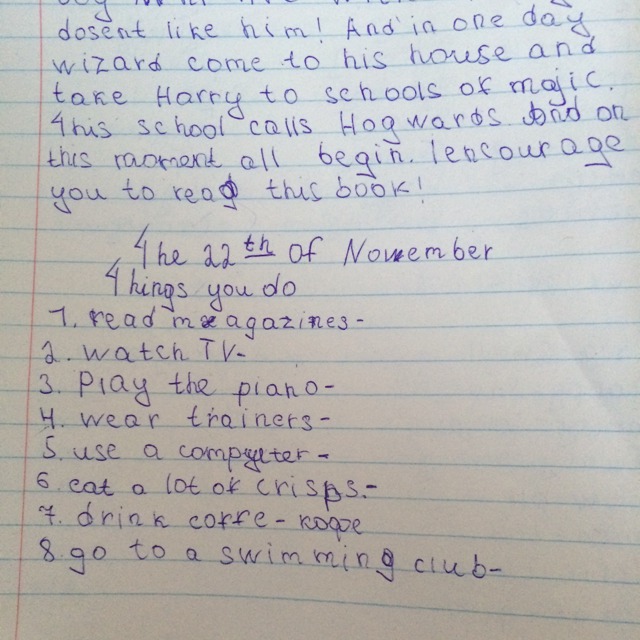 dosent like him! And in one day
wizard come to his house and
take Harry to schools of majic.
This school calls Hogwards. And on
this moment all begin. I encourage
you to read this book!
The 22th of November
Things you do
1. read magazines-
2. watch TV-
3. Play the piano-
4. wear trainers-
5. use a computer-
6. eat a lot of crisps.-
7. drink coffe - кофе
8. go to a swimming club-